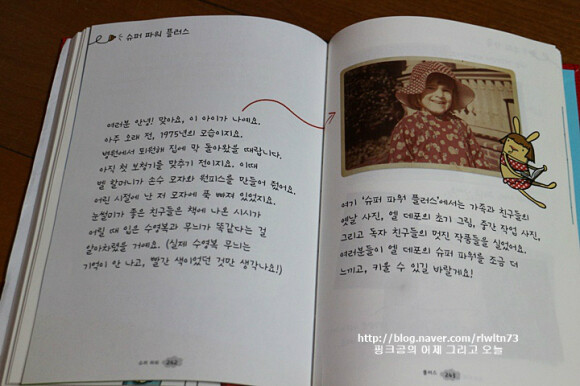 슈퍼 파워 플러스
여러분 안녕! 맞아요, 이 아이가 나예요.
아주 오래 전, 1975년의 모습이지요.
병원에서 퇴원해 집에 막 돌아왔을 때랍니다.
아직 첫 보청기를 맞추기 전이지요. 이때
벨 할머니가 손수 모자와 원피스를 만들어 줬어요.
어린 시절에 난 저 모자에 푹 빠져 있었지요.
눈썰미가 좋은 친구들은 책에 나온 시시가
어릴 때 입은 수영복과 무늬가 똑같다는 걸
알아차렸을 거예요. (실제 수영복 무늬는
기억이 안 나고, 빨간 색이었던 것만 생각나요!)
슈퍼 파워
242
여기 '슈퍼 파워 플러스'에서는 가족과 친구들의
옛날 사진, 엘 데포의 초기 그림, 중간 작업 사진,
그리고 독자 친구들의 멋진 작품들을 실었어요.
여러분들이 엘 데포의 슈퍼 파워를 조금 더
느끼고, 키울 수 있길 바랄게요!
플러스
243
http://blog.naver.com/rlwltn73
핑크곰의 어제 그리고 오늘